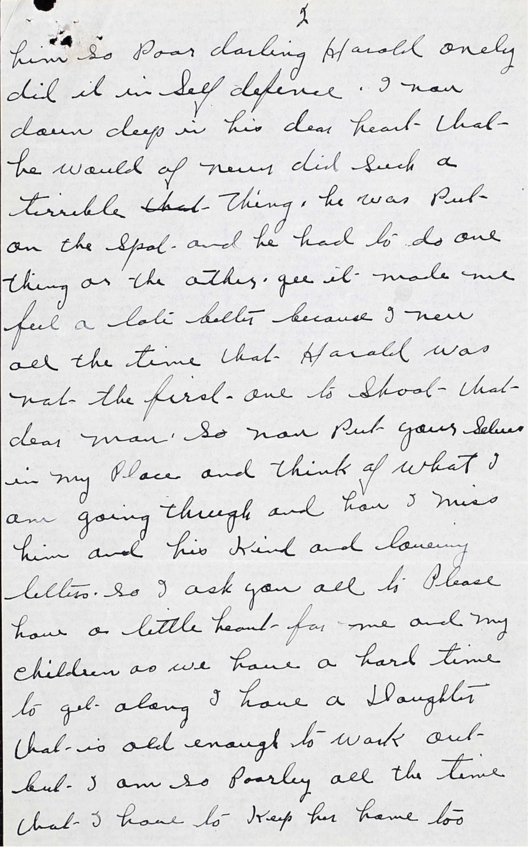 2
him so Poor darling Harold onely
did it in Self defence. I now
down deep in his dear heart that
he would of never did such a
terrible that thing. he was Put
on the Spot and he had to do one
thing or the other. gee it made me
feel a lote better because I new
all the time that Harold was
not the first one to Shoot that
dear man. So now Put your Selves
in my Place and think of what I
am going through and how I miss
him and his Kind and loveing
letters. So I ask you all to Please
have a little heart for me and my
children as we have a hard time
to get along I have a Daughter
that is old enough to work out
but I am so Poorley all the time
that I have to Keep her home too